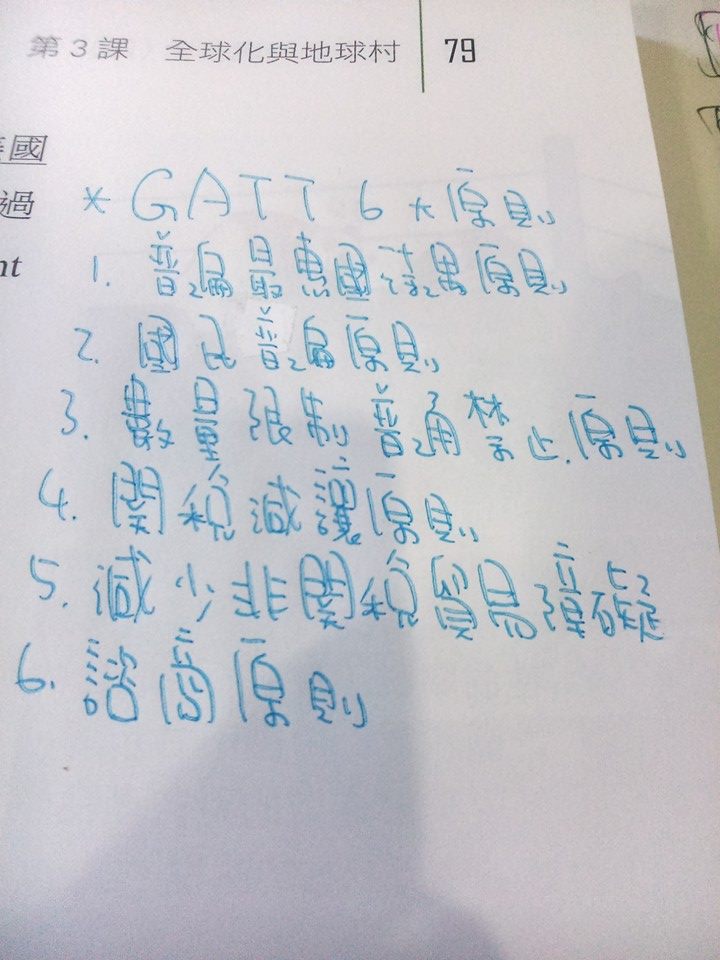 第3課 全球化與地球村 79
國
過
nt
* GATT 6大原則
1. 普遍最惠國待遇原則
2. 國民普遍原則
3. 數量限制普通禁止原則
4. 關稅減讓原則
5. 減少非關稅貿易障礙
6. 諮商原則